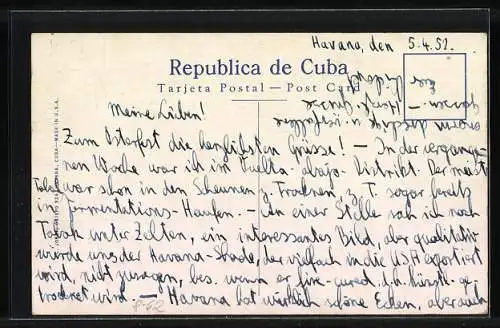 Havana, den 5.4.52.
Republica de Cuba
Tarjeta Postal — Post Card
Meine Lieben!
Zum Osterfest die herzlichsten Grüsse! — In der vergange-
nen Woche war ich im Vuelta-abajo-Distrikt. Der meiste
Tabak war schon in den Scheunen z. Trocknen, z. T. sogar bereits
in Fermentations-Haufen. — An einer Stelle sah ich noch
Tabak unter Zelten, ein interessantes Bild, aber qualitativ
würde uns der Havana-Shade, der vielfach in die USA exportiert
wird, nicht zusagen, bes. wenn er fire-cured, d.h. künstl. ge-
trocknet wird. — Havana hat wirklich schöne Ecken, aber auch